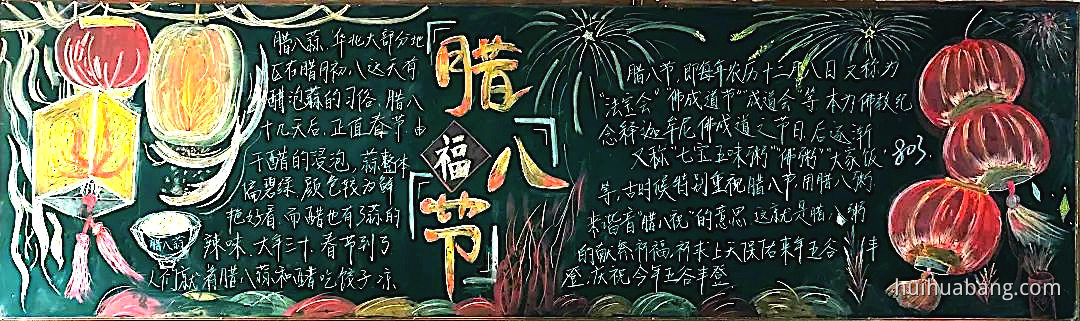 腊八蒜，华北大部分地
区有腊月初八这天有
醋泡蒜的习俗，腊八
十几天后，正值春节，由
于醋的浸泡，蒜整体
偏碧绿，颜色较为鲜
艳好看，而醋也有了蒜的
辣味，大年三十，春节到了
人们就着腊八蒜和醋吃饺子、凉
腊八蒜
腊
八
福
节
腊八节，即每年农历十二月八日，又称为
“法宝会”“佛成道节”“成道会”等，本为佛教纪
念释迦牟尼佛成道之节日，后逐渐
又称“七宝五味粥”“佛粥”“大家饭”
等，古时候特别重视腊八节，用腊八粥
来谐音“腊八祝”的意思，这就是腊八粥
的献祭祈福，祈求上天保佑来年五谷丰
登，庆祝今年五谷丰登。
803
huihuabang.com